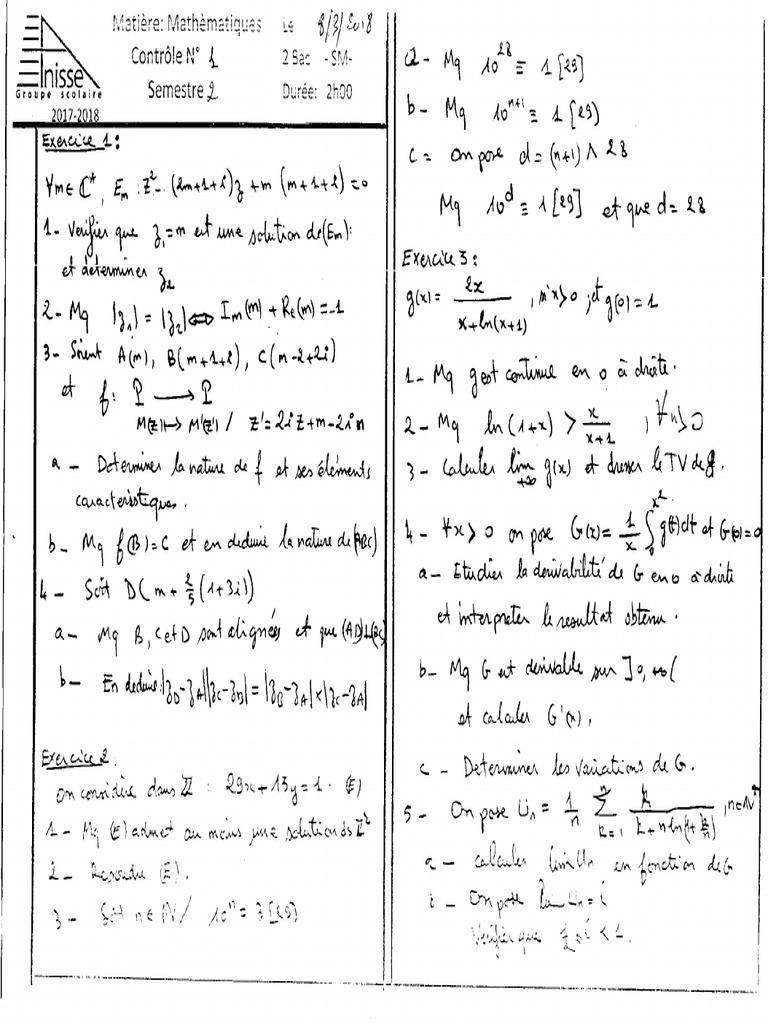 Enisse
Groupe scolaire
2017-2018
Matière: Mathématiques
Contrôle N° 1
Semestre 2
Le 8/3/2018
2 Bac -SM-
Durée: 2h00
Exercice 1:
∀m∈ℂ*, Em : z² - (2m+1+i)z + m(m+1+i) = 0
1- Verifier que z₁=m est une solution de (Em):
et determiner z₂
2- Mq |z₁| = |z₂| ⇔ Im(m) + Re(m) = -1
3- Soient A(m), B(m+1+i), C(m-2+2i)
et f: P → P
M(z) ↦ M'(z') / z' = 2iz + m - 2im
a - Determiner la nature de f et ses éléments
caracteristiques.
b - Mq f(B)=C et en deduire la nature de (ABC)
4 - Soit D(m + 2/5 (1+3i))
a - Mq B, C et D sont alignées et que (AD)⊥(BC)
b - En deduire: |zD-zA||zC-zB| = |zB-zA|×|zC-zA|
Exercice 2:
On considère dans ℤ² : 29x + 13y = 1. (E)
1 - Mq (E) admet au moins une solution ds ℤ²
2 - Resoudre (E).
3 - Soit n∈ℕ / 10ⁿ ≡ 3 [29]
a - Mq 10²⁸ ≡ 1 [29]
b - Mq 10ⁿ⁺¹ ≡ 1 [29]
c = on pose d = (n+1) ∧ 28
Mq 10ᵈ ≡ 1 [29] et que d = 28
Exercice 3:
g(x) = 2x / (x+ln(x+1)), si x>0 ; et g(0) = 1
1 - Mq g est continue en 0 à droite.
2 - Mq ln(1+x) > x/(x+1) , ∀x>0
3 - Calculer lim +∞ g(x) et dresser le TV de g.
4 - ∀x>0 on pose G(x) = 1/x ∫₀^x² g(t)dt et G(0)=0
a - Etudier la derivabilité de G en 0 à droite
et interpreter le resultat obtenu.
b - Mq G est derivable sur ]0,+∞(
et calculer G'(x).
c - Determiner les variations de G.
5 - On pose Un = 1/n Σ k=1 n k / (k + n ln(1+k/n)), n∈ℕ*
a - calculer lim Un en fonction de G
b - On pose lim Un = l
Verifier que 1/2 ≤ l < 1.